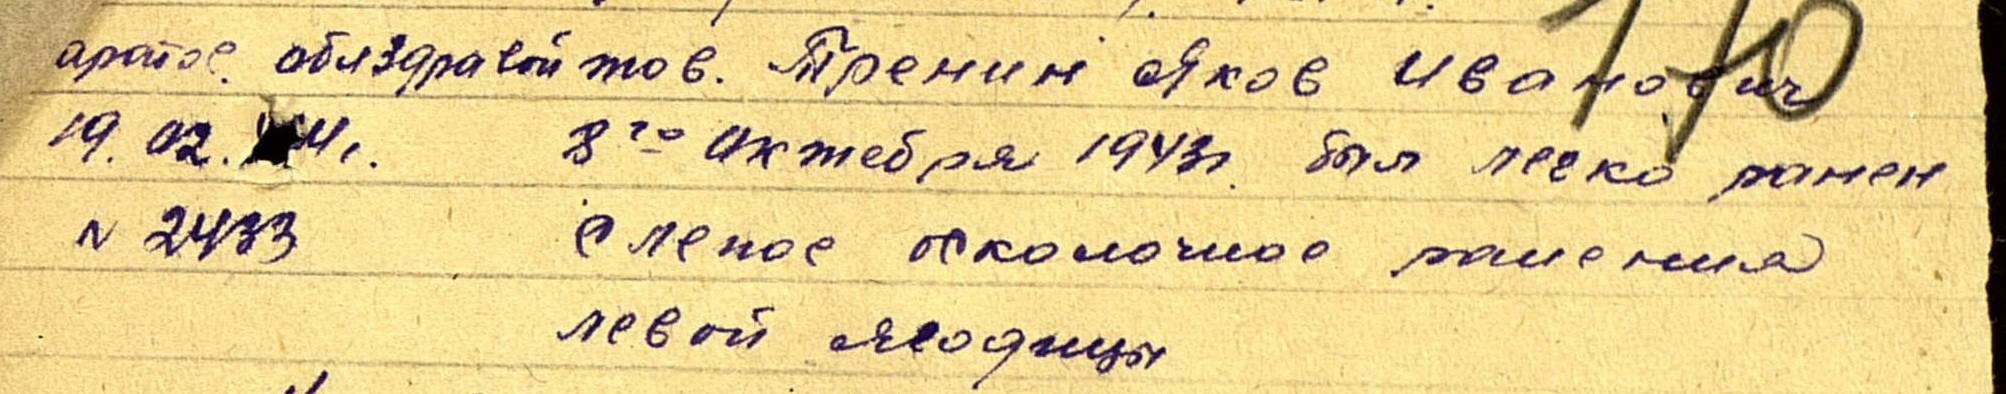 170
облздравой тов. Тренин Яков Иванович
19. 02. 44г. 8го Октебря 1943г. был легко ранен
N 2433 Слепое осколочное ранения
левой ягодицы